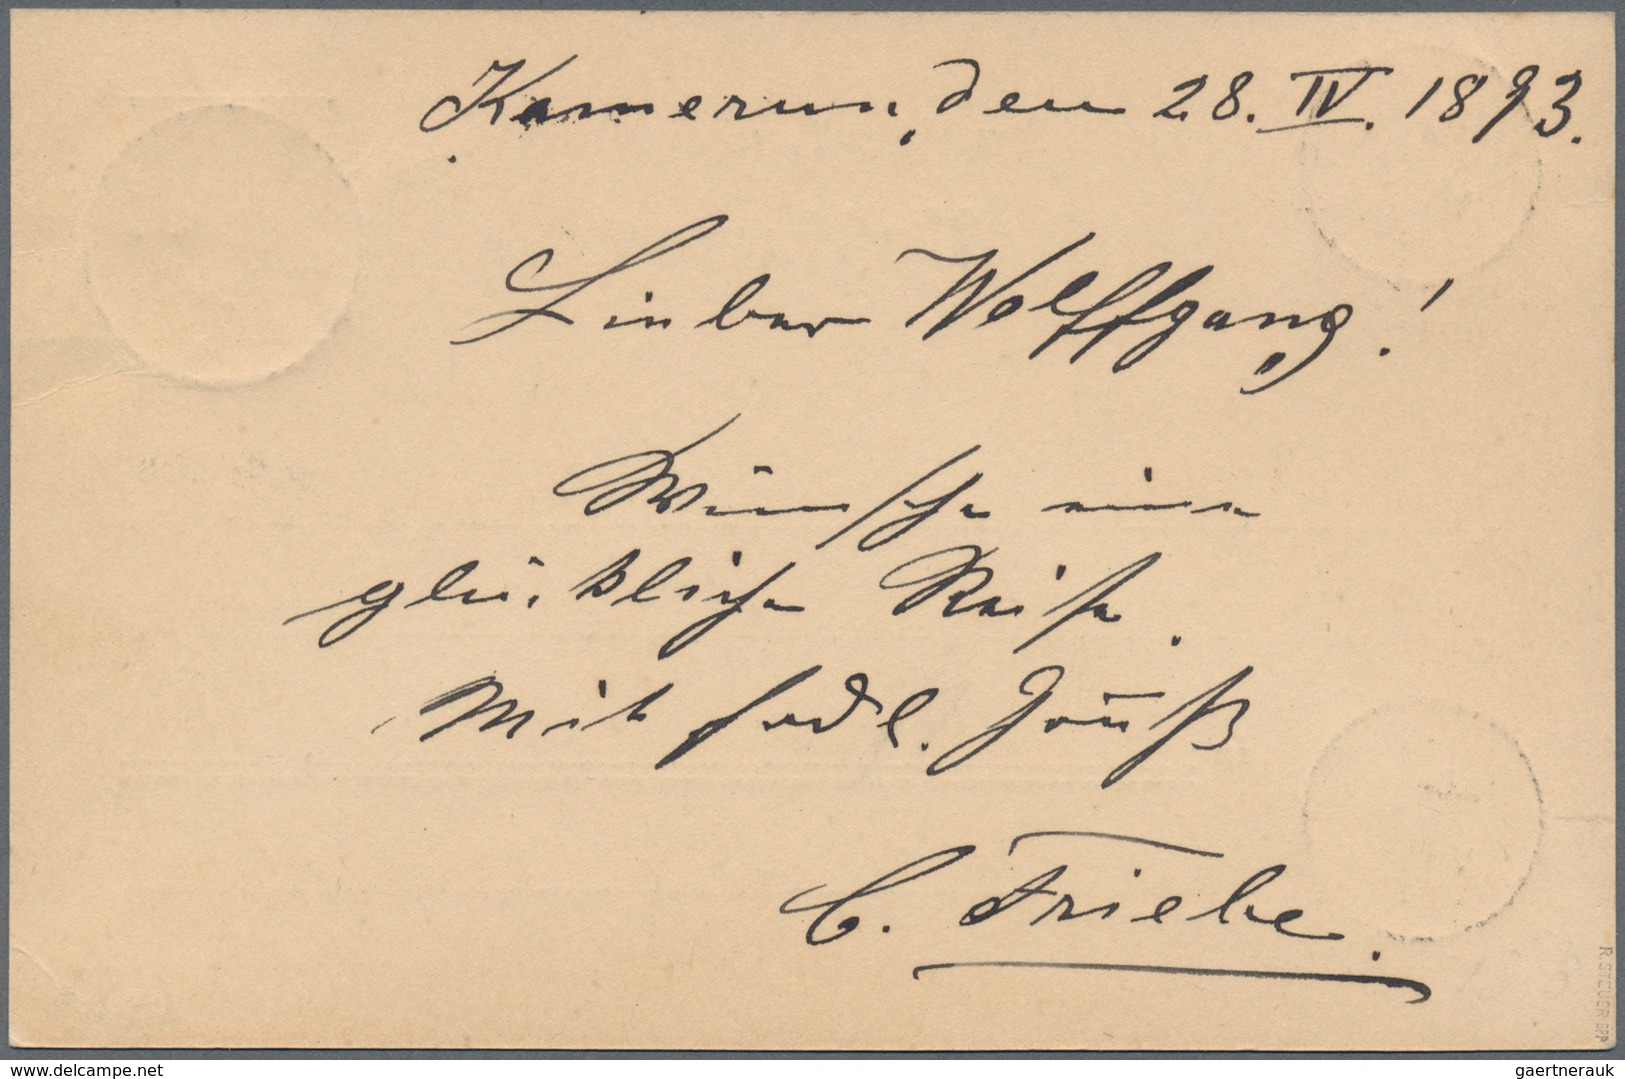 Kamerun, den 28. IV. 1893.
Lieber Wolffgang!
Wünsche eine
glückliche Reise.
Mit frdl. Gruß
C. Friebe.
R. STEUER BPP
delcampe.net
gaertnerauk